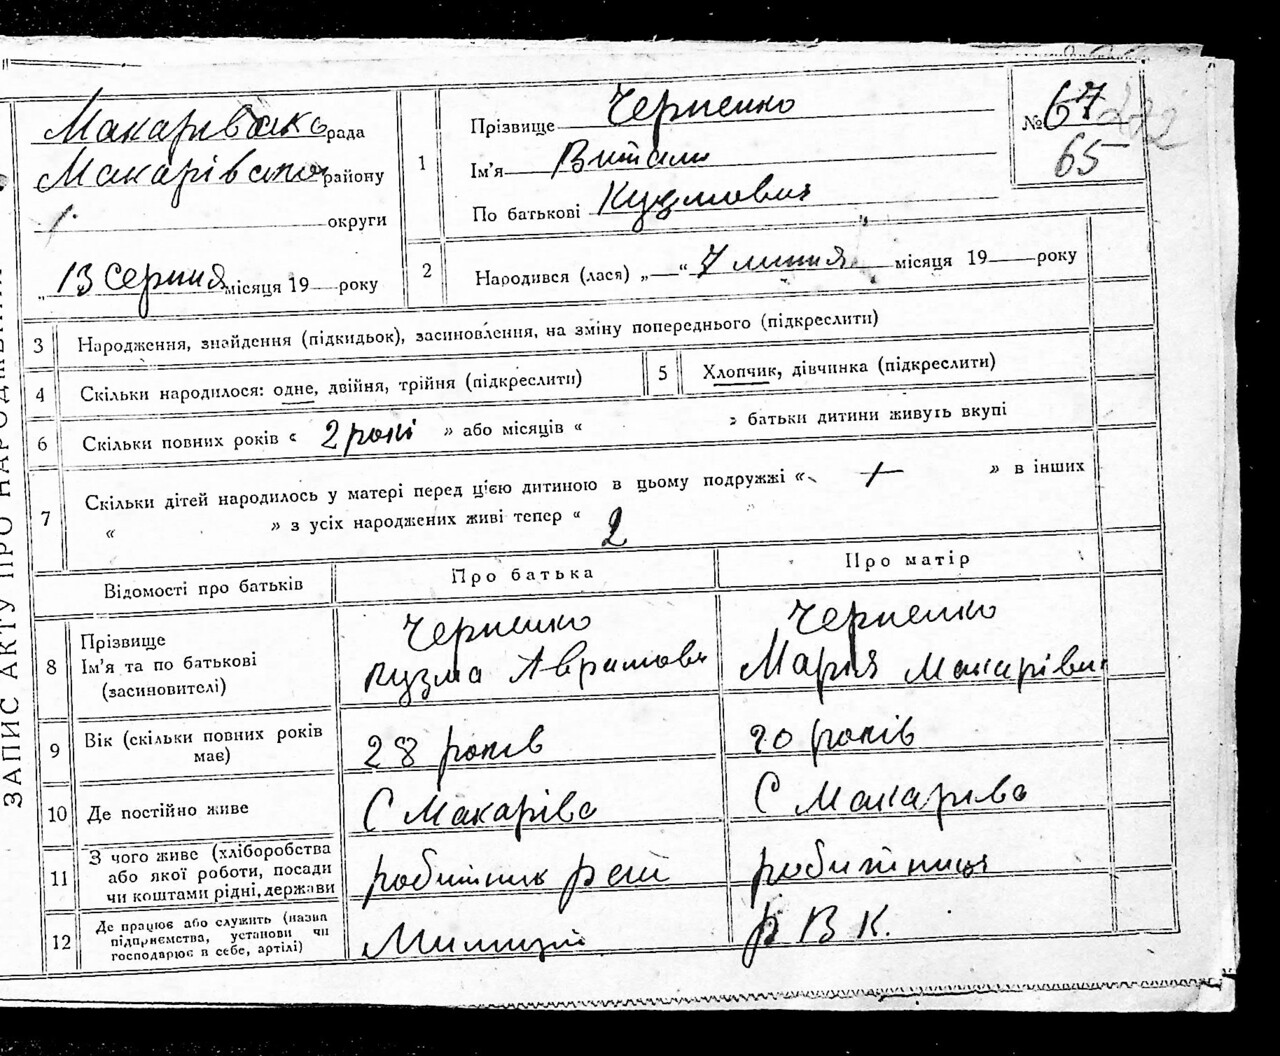 ЗАПИС АКТУ ПРО НАРОДЖЕННЯ
Макарівська рада
Макарівського району
округи
„13 серпня місяця 19 року
1
Прізвище Черненко
Ім'я Витали
По батькові Кузмович
№ 67
65
2
Народився (лася) „ “ 7 липня місяця 19 року
3 Народження, знайдення (підкидьок), засиновлення, на зміну попереднього (підкреслити)
4 Скільки народилося: одне, двійня, трійня (підкреслити)
5 Хлопчик, дівчинка (підкреслити)
6 Скільки повних років « 2 рокі » або місяців « » батьки дитини живуть вкупі
7 Скільки дітей народилось у матері перед цією дитиною в цьому подружжі « » в інших
« » з усіх народжених живі тепер « 2
Відомості про батьків
Про батька
Про матір
8 Прізвище
Ім'я та по батькові
(засиновителі)
Черненко
Кузма Аврамови
Черненко
Мария Макаріви
9 Вік (скільки повних років
має)
28 років
20 років
10 Де постійно живе
С Макарів
С Макарів
11 З чого живе (хліборобства
або якої роботи, посади
чи коштами рідні, держави
робитник
робитниця
12 Де працює або служить (назва
підприємства, установи чи
господарює в себе, артілі)
Милиції
р В К.